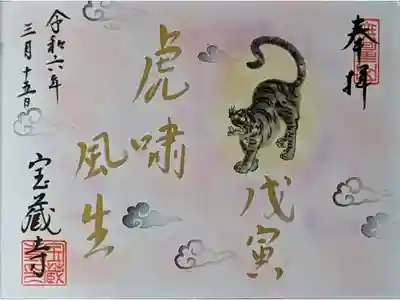 奉拝
戊寅
虎嘯
風生
令和六年
三月十五日
宝蔵寺